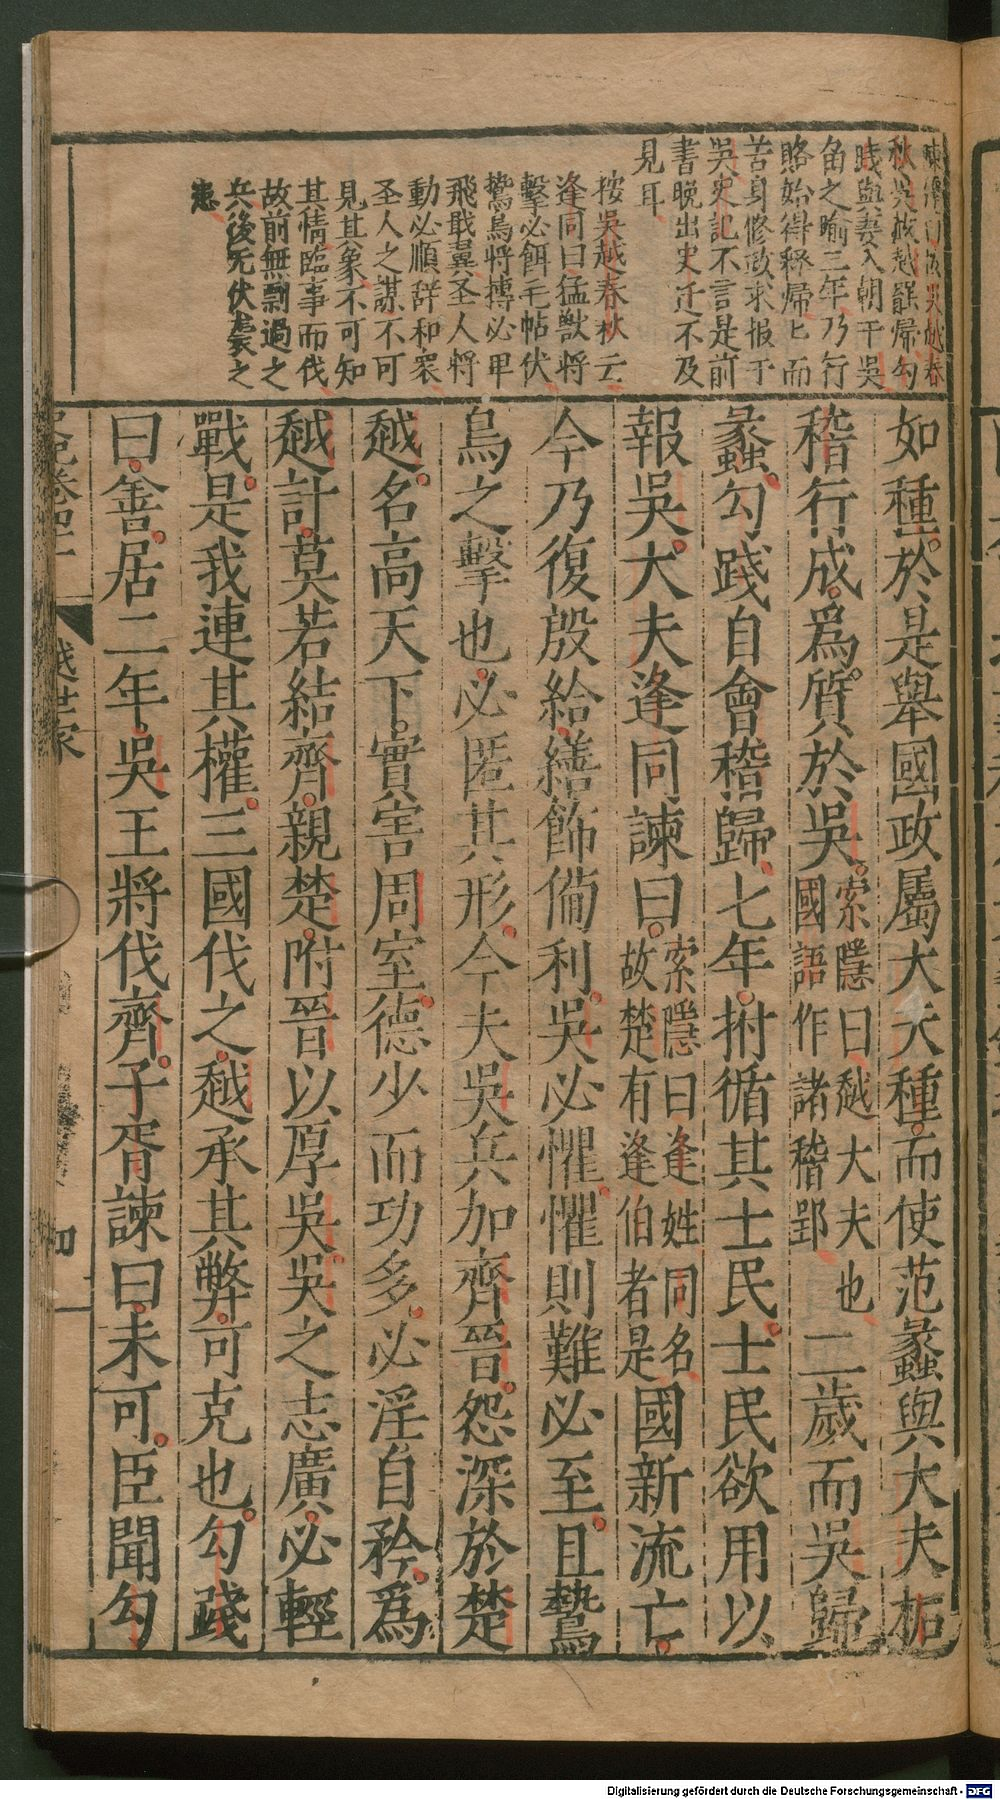 陳澤曰按吳越春
秋吳赦越罷歸勾
踐與妻入朝于吳
角之喻三年乃行
賂始得釋歸七而
苦身修政求报于
吳史記不言是前
書晚出史迁不及
見耳
按吳越春秋云
逢同曰猛獸将
擊必餌毛帖伏
鷙鳥将搏必卑
飛戢翼圣人将
動必順辞和衆
圣人之謀不可
見其象不可知
其情臨事而伐
故前無剽過之
兵後无伏襲之
患
如種於是舉國政屬大夫種而使范蠡與大夫柘
稽行成爲質於吳
索隱曰越大夫也
國語作諸稽郢
二歲而吳歸
蠡勾踐自會稽歸七年拊循其士民士民欲用以
報吳大夫逢同諫曰
索隱曰逢姓同名
故楚有逢伯者是
國新流亡
今乃復殷給繕飾備利吳必懼懼則難必至且鷙
鳥之擊也必匿其形今夫吳兵加齊晉怨深於楚
越名高天下實害周室德少而功多必淫自矜爲
越計莫若結齊親楚附晉以厚吳吳之志廣必輕
戰是我連其權三國伐之越承其弊可克也勾踐
曰善居二年吳王將伐齊子胥諫曰未可臣聞勾
越世家
Digitalisierung gefördert durch die Deutsche Forschungsgemeinschaft - DFG